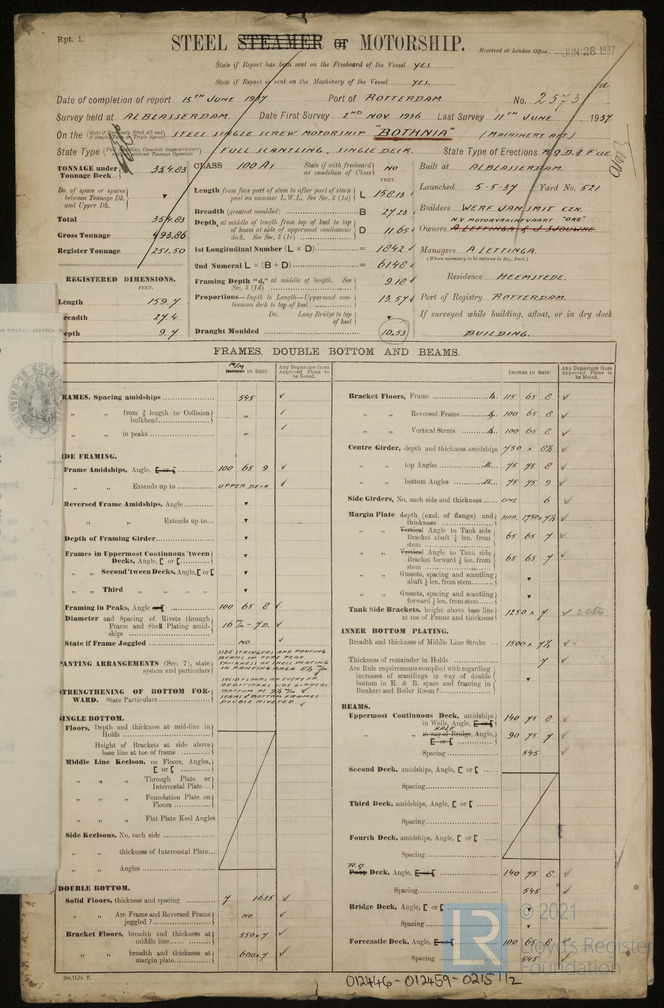 Rpt. 1.
STEEL STEAMER or MOTORSHIP.
Received at London Office JUN 28 1937
State if Report has been sent on the Freeboard of the Vessel YES
State if Report is sent on the Machinery of the Vessel YES.
Date of completion of report 15TH JUNE 1937 Port of ROTTERDAM No. 2573
Survey held at ALBLASSERDAM Date First Survey 2ND NOV. 1936 Last Survey 11TH JUNE 1937
On the STEEL SINGLE SCREW MOTORSHIP "BOTHNIA" (MACHINERY AFT)
State Type FULL SCANTLING, SINGLE DECK. State Type of Erections R.Q.D. & F'CLE
TONNAGE under Tonnage Deck 354.83
Do. of space or spaces between Tonnage Dk. and Upper Dk.
Total 354.83
Gross Tonnage 493.86
Register Tonnage 251.50
REGISTERED DIMENSIONS.
FEET.
Length 159.7
Breadth 27.4
epth 9.7
CLASS 100 A1 State if with freeboard as condition of Class NO
FEET.
Length from fore part of stem to after part of stern post on summer L.W.L. See Sec. 3 (1a) L 158.13
Breadth (greatest moulded) B 27.23
Depth, at middle of length from top of keel to top of beam at side of uppermost continuous deck. See Sec. 3 (1c) D 11.65
1st Longitudinal Number (L × D) = 1842
2nd Numeral L × (B + D) = 6148
Framing Depth "d," at middle of length. See Sec. 3 (1d) 9.18
Proportions—Depth to Length—Uppermost continuous deck to top of keel 13.57
Do. Long Bridge to top of keel
Draught Moulded 10.53
Built at ALBLASSERDAM.
Launched 5-5-37 Yard No. 521
Builders WERF JAN SMIT CZN.
N.V. MOTORVRACHTVAART "OKE"
Owners A LETTINGA & J SJOUWKE
Managers A LETTINGA.
(Where necessary to be entered in Reg. Book.)
Residence HEEMSTEDE.
Port of Registry ROTTERDAM.
If surveyed while building, afloat, or in dry dock
BUILDING.
FRAMES, DOUBLE BOTTOM AND BEAMS.
M/M IN SHIP. Any Departure from Approved Plans to be Noted.
RAMES, Spacing amidships 545 ✓
„ „ from ⅗ length to Collision bulkhead „ ✓
„ „ in peaks „ ✓
DE FRAMING.
Frame Amidships, Angle, 100 65 9 ✓
„ „ Extends up to UPPER DECK.
Reversed Frame Amidships, Angle
„ „ Extends up to
Depth of Framing Girder
Frames in Uppermost Continuous 'tween Decks, Angle, [ or [
„ „ Second 'tween Decks, Angle, [ or [
„ „ Third „ „ „
Framing in Peaks, Angle 100 65 8 ✓
Diameter and Spacing of Rivets through Frame and Shell Plating amidships 16 M/M - 7D. ✓
State if Frame Joggled NO.
PANTING ARRANGEMENTS (Sec. 7), state system and particulars SIDE STRINGERS AND PANTING BEAMS IN FORE PEAK THICKNESS OF SHELL PLATING IN PANTING AREA
STRENGTHENING OF BOTTOM FORWARD. State Particulars SOLID FLOORS ON EVERY FR ADDITIONAL SIDE GIRDERS BOTTOM PL BOTTOM FRAMES DOUBLE RIVETED ✓
SINGLE BOTTOM.
Floors, Depth and thickness at mid-line in Holds
Height of Brackets at side above base line at toe of frame
Middle Line Keelson, on Floors, Angles, [ or [
„ „ „ Through Plate or Intercostal Plate
„ „ „ Foundation Plate on Floors
„ „ „ Flat Plate Keel Angles
Side Keelsons, No. each side
„ „ thickness of Intercostal Plate
„ „ Angles
DOUBLE BOTTOM.
Solid Floors, thickness and spacing 7 1635 ✓
„ „ Are Frame and Reversed Frame joggled? NO ✓
Bracket Floors, breadth and thickness at middle line 550×7 ✓
„ „ breadth and thickness at margin plate 600×7 ✓
INCHES IN SHIP. Any Departure from Approved Plans to be Noted.
Bracket Floors, Frame 115 65 8 ✓
„ „ Reversed Frame 100 65 8 ✓
„ „ Vertical Struts 100 65 8 ✓
Centre Girder, depth and thickness amidships 750 × 8½ ✓
„ „ top Angles 75 75 8 ✓
„ „ bottom Angles 75 75 9 ✓
Side Girders, No. each side and thickness ONE 6 ✓
Margin Plate depth (excl. of flange) and thickness HOR. 1750×7½ ✓
„ „ Vertical Angle to Tank side Bracket abaft ¼ len. from stem 65 65 7 ✓
„ „ Vertical Angle to Tank side Bracket forward ¼ len. from stem 65 65 7 ✓
„ „ Gussets, spacing and scantling abaft ¼ len. from stem
„ „ Gussets, spacing and scantling forward ¼ len. from stem
Tank Side Brackets, height above base line at toe of Frame and thickness 1250 × 7 ✓
INNER BOTTOM PLATING.
Breadth and thickness of Middle Line Strake 1500 × 7½ ✓
Thickness of remainder in Holds 7 ✓
Are Rule requirements complied with regarding increases of scantlings in way of double bottom in E. & B. space and framing in Bunkers and Boiler Room?
BEAMS.
Uppermost Continuous Deck, amidships in Wells, Angle, 140 75 8 ✓
„ „ HALF in way of Bridge, Angle, [ or [ 90 75 7 ✓
Spacing 545 ✓
Second Deck, amidships, Angle, [ or [
Spacing
Third Deck, amidships, Angle, [ or [
Spacing
Fourth Deck, amidships, Angle, [ or [
Spacing
R.Q.
Poop Deck, Angle, 140 75 8 ✓
Spacing 545 ✓
Bridge Deck, Angle, [ or [
Spacing
Forecastle Deck, Angle, 100 65 8 ✓
Spacing 545 ✓
LR
© 2021
Lloyd's Register
Foundation
012446-012459-0215 1/2